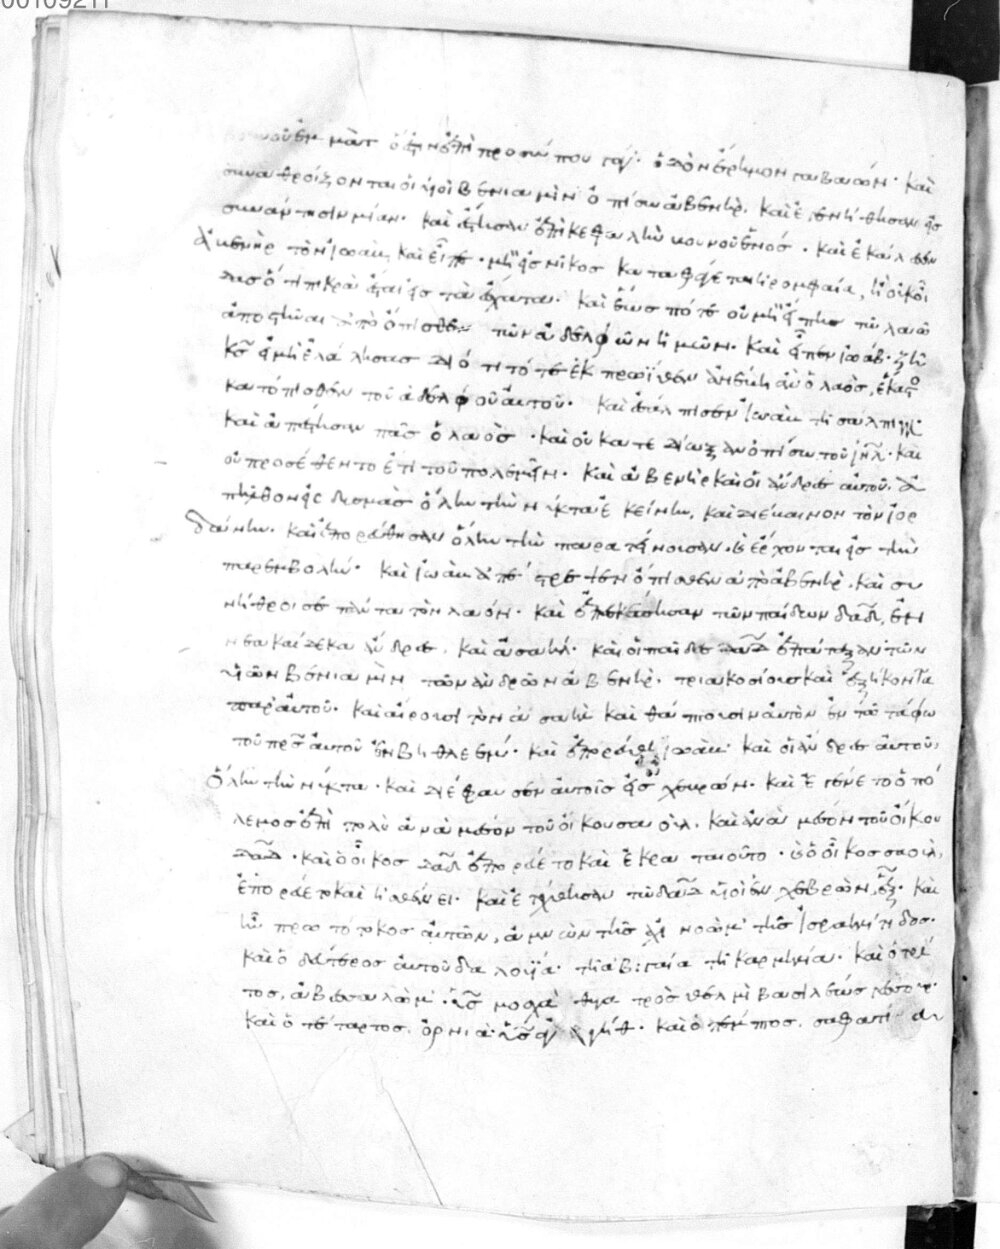 00109211
βουνοῦ ἐμμὰτ ὅ ἐστιν ἐπὶ προσώπου γαί· ὁδὸν ἔρημον γαβαών· καὶ
συναθροίζονται οἱ υἱοὶ βενιαμὶν ὀπίσω ἀβενὴρ. καὶ ἐγενήθησαν εἰς
συνάντησιν μίαν· καὶ ἔστησαν ἐπὶ κεφαλὴν βουνοῦ ἑνός· καὶ ἐκάλεσεν
ἀβενὴρ τὸν ἰωὰβ, καὶ εἶπε· μὴ εἰς νῖκος καταφάγεται ἡ ρομφαία, ἢ οὐκ οἶ
δας ὅτι πικρὰ ἔσται εἰς τὰ ἔσχατα· καὶ ἕως πότε οὐ μὴ εἴπῃς τῶ λαῶ
ἀποστῆναι ἀπὸ ὄπισθεν τῶν ἀδελφῶν ἡμῶν. καὶ εἶπεν ἰωάβ· ζῆ
κς εἰ μὴ ἐλάλησας διότι τότε ἐκ πρωΐθεν ἀνέβη ἂν ὁ λαὸς, ἕκαστος
κατόπισθεν τοῦ ἀδελφοῦ αὐτοῦ· καὶ ἐσάλπισεν ἰωὰβ τῆ σάλπιγγι
καὶ ἀπέστησαν πᾶς ὁ λαὸς· καὶ οὐ κατεδίωξαν ὀπίσω τοῦ ιηλ· καὶ
οὐ προσέθεντο ἔτι τοῦ πολεμεῖν. καὶ ἀβενὴρ καὶ οἱ ἄνδρες αὐτοῦ ἀ
πῆλθον εἰς δυσμὰς ὅλην τὴν νύκτα ἐκείνην, καὶ διέβαινον τὸν ἰορ
δάνην. καὶ ἐπορεύθησαν ὅλην τὴν παρατείνουσαν. καὶ ἔρχονται εἰς τὴν
παρεμβολήν· καὶ ἰωὰβ ἀπέστρεψεν ὄπισθεν ἀπὸ ἀβενὴρ. καὶ συ
νήθροισε πάντα τὸν λαόν. καὶ ἐπεσκέπησαν τῶν παίδων δαδ, ἐν
νεακαίδεκα ἄνδρες, καὶ ἀσαήλ· καὶ οἱ παῖδες δαδ ἐπάταξαν τῶν
υἱῶν βενιαμὶν τῶν ἀνδρῶν ἀβενὴρ. τριακοσίους καὶ ἑξήκοντα
παρ αὐτοῦ. καὶ αἴρουσι τὸν ἀσαὴλ καὶ θάπτουσιν αὐτὸν ἐν τῶ τάφω
τοῦ πρς αὐτοῦ ἐν βηθλεέμ· καὶ ἐπορεύθη ἰωὰβ καὶ οἱ ἄνδρες αὐτοῦ,
ὅλην τὴν νύκτα· καὶ διέφαυσεν αὐτοῖς εἰς χεβρών. καὶ ἐγένετο ὁ πό
λεμος ἐπὶ πολὺ ἀναμέσον τοῦ οἴκου σαοὺλ. καὶ ἀναμέσον τοῦ οἴκου
δαδ· καὶ ὁ οἶκος δαδ ἐπορεύετο καὶ ἐκραταιοῦτο· καὶ ὁ οἶκος σαούλ,
ἐπορεύετο καὶ ἠσθένει. καὶ ἐτέχθησαν τῶ δαδ υἱοὶ ἐν χεβρὼν, ἕξ. καὶ
ἦν πρωτότοκος αὐτῶν, ἀμνὼν τῆς ἀχινοὼμ τῆς ἰσραηλίτιδος·
καὶ ὁ δεύτερος αὐτοῦ δαλουϊά· τῆ ἀβιγαία τῆ καρμηλία. καὶ ὁ τρί
τος, ἀβεσσαλὼμ· υἱὸς μααχὰ θυγατρὸς θελμὶ βασιλέως γεσοὺρ·
καὶ ὁ τέταρτος, ὀρνιὰ υἱὸς ἀγγίθ· καὶ ὁ πέμπτος, σαφατί